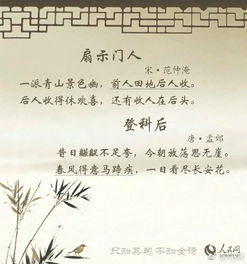 扇示门人
宋·范仲淹
一派青山景色幽，前人田地后人收。
后人收得休欢喜，还有收人在后头。
登科后
唐·孟郊
昔日龌龊不足夸，今朝放荡思无崖。
春风得意马蹄疾，一日看尽长安花。
只知其句 不知全诗
人民网